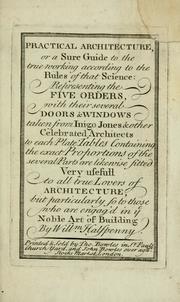 PRACTICAL ARCHITECTURE,
or a Sure Guide to the
true working according to the
Rules of that Science:
Representing the
FIVE ORDERS,
with their several
DOORS & WINDOWS
taken from Inigo Jones & other
Celebrated Architects
to each Plate Tables Containing
the exact Proportions of the
several Parts are likewise fitted
Very usefull
to all true Lovers of
ARCHITECTURE,
but particularly so to those
who are engag'd in ye
Noble Art of Building
By Willm Halfpenny
Printed & Sold by Tho. Bowles in St. Pauls
Church Yard, and John Bowles over agst
Stocks Market, London.